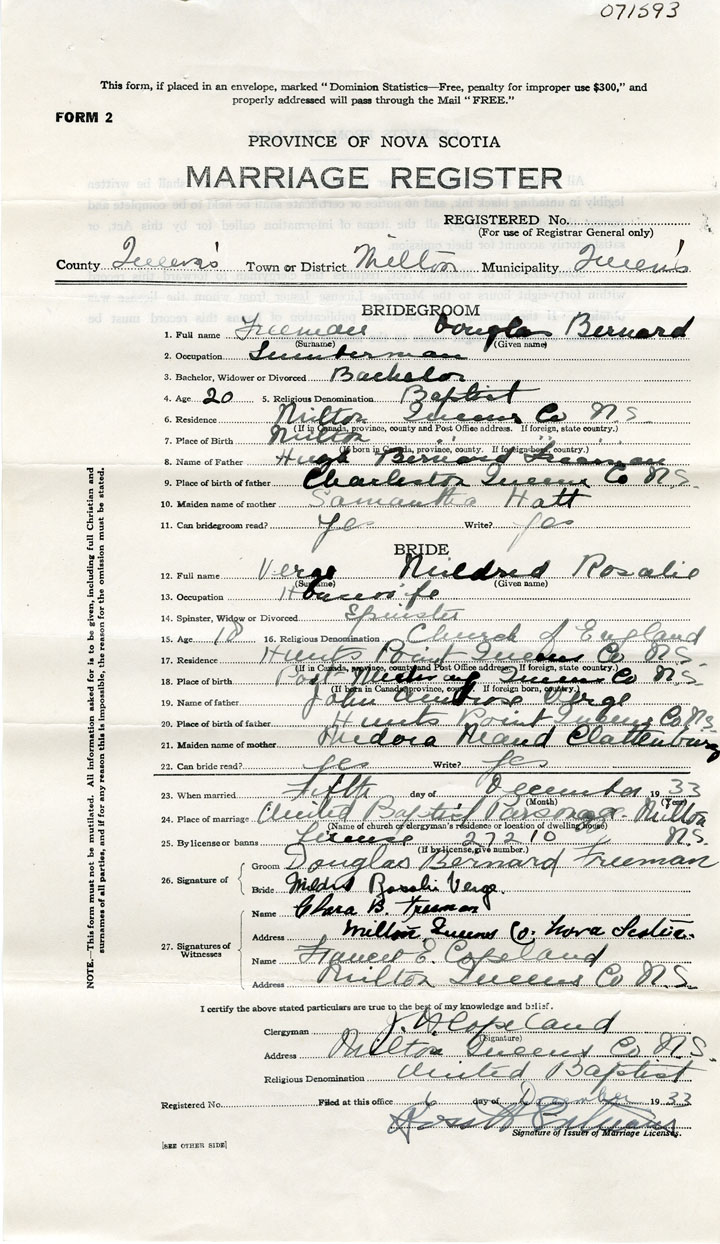 071593
This form, if placed in an envelope, marked "Dominion Statistics—Free, penalty for improper use $300," and
properly addressed will pass through the Mail "FREE."
FORM 2
PROVINCE OF NOVA SCOTIA
MARRIAGE REGISTER
REGISTERED No.
(For use of Registrar General only)
County Queens's Town or District Milton Municipality Queen's
BRIDEGROOM
1. Full name Freeman Douglas Bernard
(Surname) (Given name)
2. Occupation Lumberman
3. Bachelor, Widower or Divorced Bachelor
4. Age 20 5. Religious Denomination Baptist
6. Residence Milton Queens Co N.S.
(If in Canada, province, county and Post Office address. If foreign, state country.)
7. Place of Birth Milton " " "
(If born in Canada, province, county. If foreign born, country.)
8. Name of Father Hugh Bernard Freeman
9. Place of birth of father Charleston Queens Co N.S.
10. Maiden name of mother Samantha Hatt
11. Can bridegroom read? Yes Write? Yes
BRIDE
12. Full name Verge Mildred Rosalie
(Surname) (Given name)
13. Occupation Housewife
14. Spinster, Widow or Divorced Spinster
15. Age 18 16. Religious Denomination Church of England
17. Residence Hunts Point Queens Co N.S.
(If in Canada, province, county and Post Office address. If foreign, state country.)
18. Place of birth Port Medway Queens Co N.S.
(If born in Canada, province, county. If foreign born, country.)
19. Name of father John Ambrose Verge
20. Place of birth of father Hunts Point Queens Co N.S.
21. Maiden name of mother Medora Maand Clattenburg
22. Can bride read? Yes Write? Yes
23. When married Fifth day of December 1933
(Month) (Year)
24. Place of marriage United Baptist Parsonage Milton
(Name of church or clergyman's residence or location of dwelling house) N.S.
25. By license or banns License 27210
(If by license, give number.)
26. Signature of Groom Douglas Bernard Freeman
Bride Mildred Rosalie Verge.
27. Signatures of Witnesses
Name Clara B. Freeman
Address Milton Queens Co. Nova Scotia.
Name Frances E. Copeland
Address Milton Queens Co N.S.
I certify the above stated particulars are true to the best of my knowledge and belief.
Clergyman J. A. Copeland
(Signature)
Address Milton Queens Co N.S.
Religious Denomination United Baptist
Registered No. Filed at this office 6 day of December 1933
Signature of Issuer of Marriage Licenses.
[SEE OTHER SIDE]
NOTE.—This form must not be mutilated. All information asked for is to be given, including full Christian and
surnames of all parties, and if for any reason this is impossible, the reason for the omission must be stated.